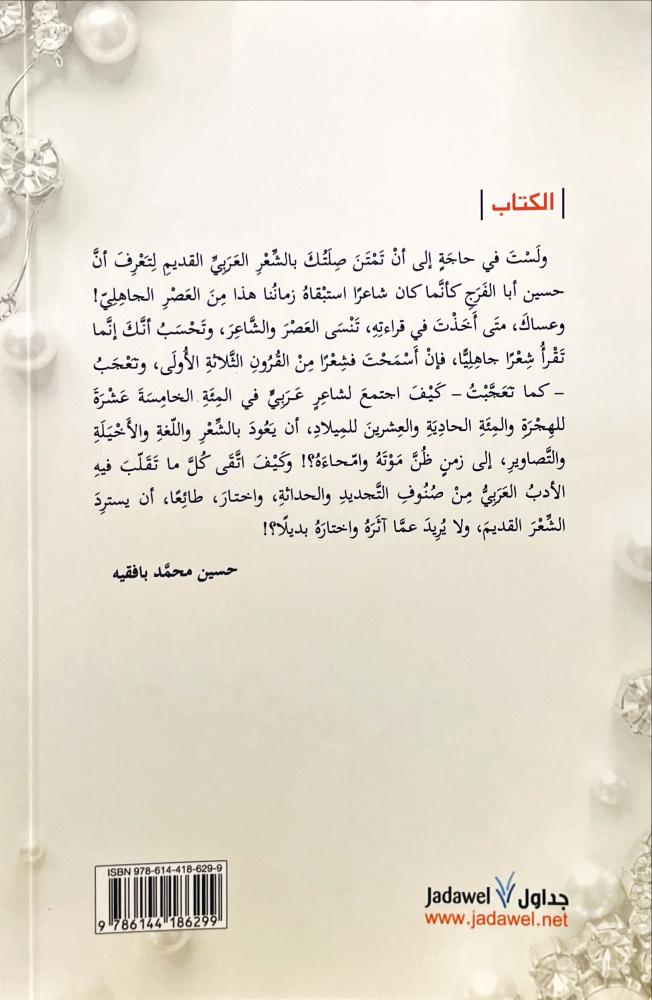 |الكتاب|
ولَسْتَ في حاجَةٍ إلى أنْ تَمْتَنَ صِلَتُكَ بالشِّعْرِ العَرَبِيِّ القديمِ لِتَعْرِفَ أنَّ
حسين أبا الفَرَجِ كأنَّما كان شاعرًا استبْقاهُ زمانُنا هذا مِنَ العَصْرِ الجاهليّ!
وعساكَ، متَى أَخَذْتَ في قراءتِهِ، تَنْسَى العَصْرَ والشَّاعِرَ، وتَحْسَبُ أنَّكَ إنَّما
تَقْرأُ شِعْرًا جاهلِيًّا، فإنْ أَسْمَحْتَ فشِعْرًا مِنْ القُرونِ الثَّلاثةِ الأُولَى، وتعْجَبُ
– كما تعَجَّبْتُ – كَيْفَ اجتمعَ لشاعِرٍ عَرَبِيٍّ في المِئَةِ الخامِسَةَ عَشْرَةَ
للهِجْرَةِ والمِئَةِ الحادِيَةِ والعِشرينَ للمِيلادِ، أن يَعُودَ بالشِّعْرِ واللّغةِ والأَخْيِلَةِ
والتَّصاويرِ، إلى زمنٍ ظُنَّ مَوْتَهُ وامّحاءَهُ؟! وكَيْفَ اتَّقَى كُلَّ ما تَقَلّبَ فيهِ
الأدبُ العَرَبِيُّ مِنْ صُنُوفِ التَّجديدِ والحداثةِ، واختارَ، طائِعًا، أن يستردَ
الشِّعْرَ القديمَ، ولا يُرِيدَ عمَّا آثَرَهُ واختارَهُ بديلًا؟!
حسين محمَّد بافقيه
ISBN 978-614-418-629-9
9 786144 186299
Jadawel جداول
www.jadawel.net